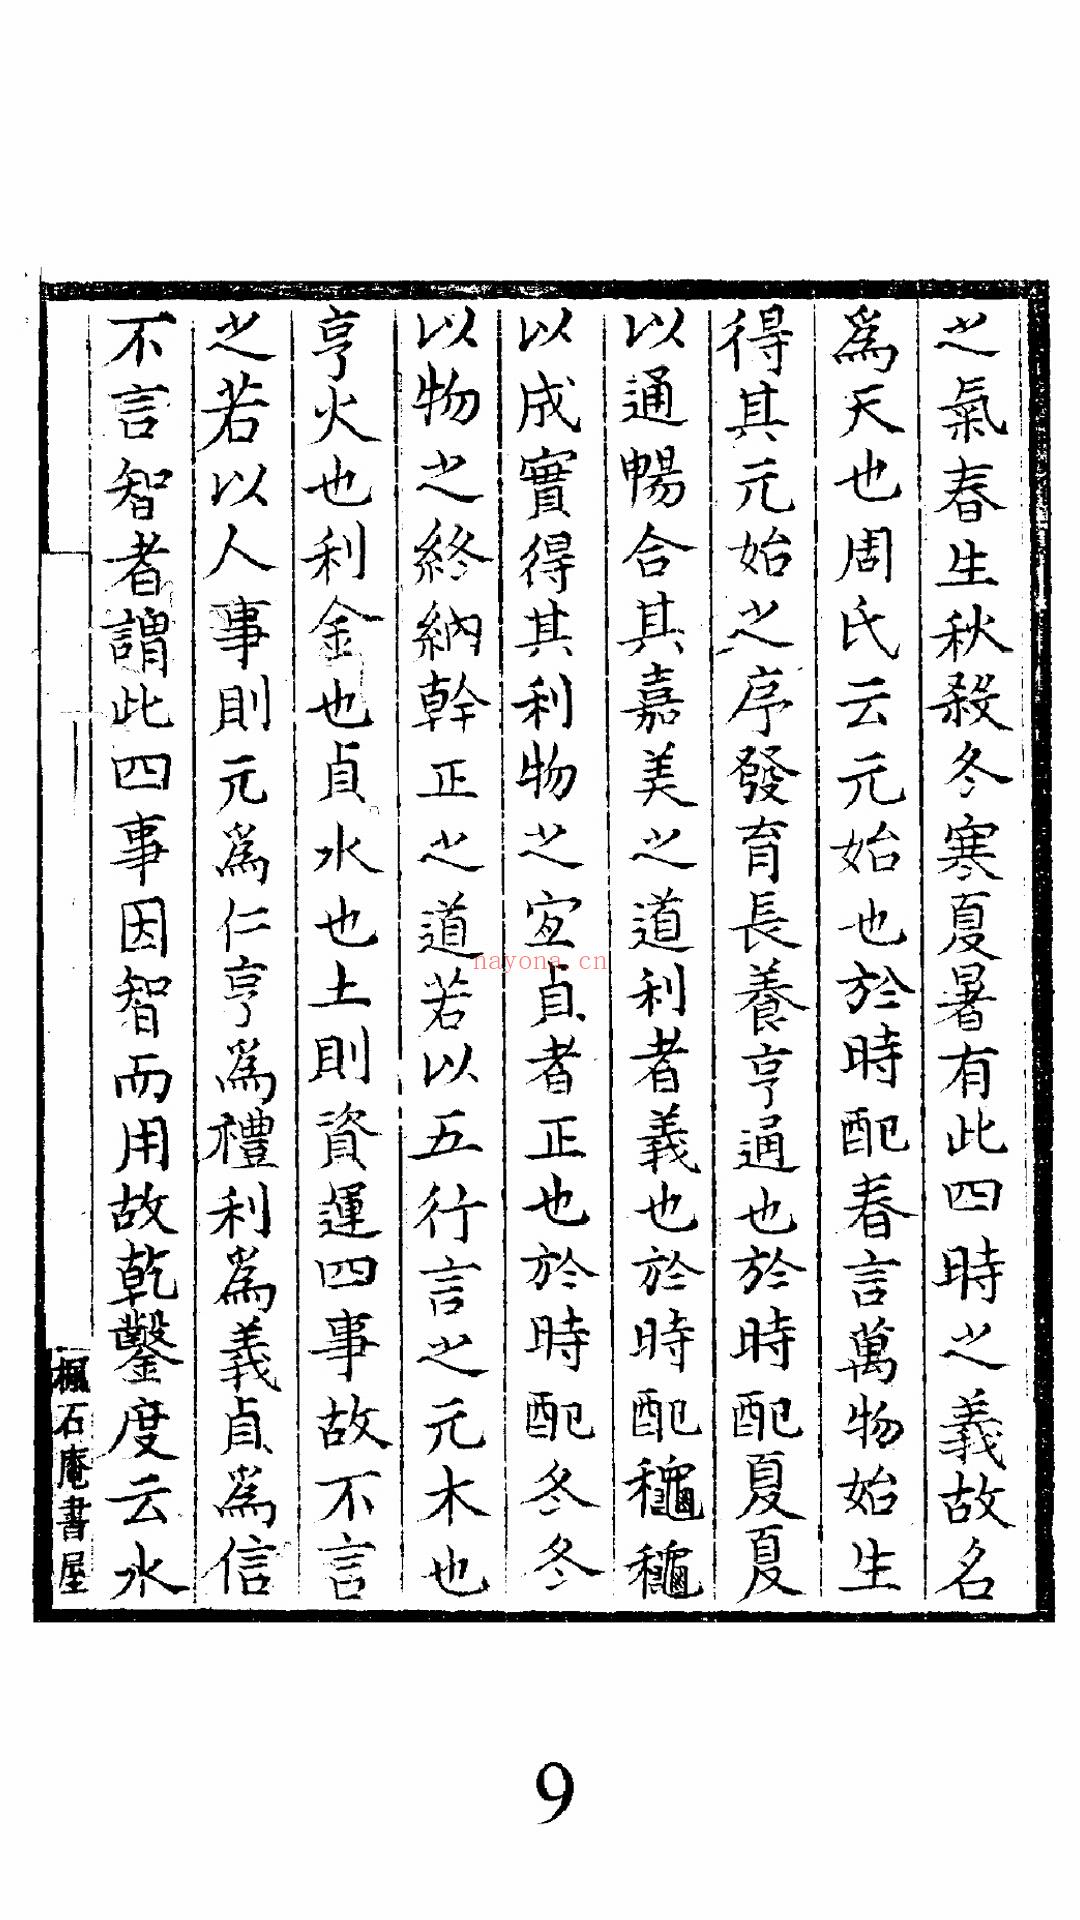 之氣春生秋殺冬寒夏暑有此四時之義故名
爲天也周氏云元始也於時配春言萬物始生
得其元始之序發育長養亨通也於時配夏夏
以通暢合其嘉美之道利者義也於時配龝龝
以成實得其利物之宜貞者正也於時配冬冬
以物之終納幹正之道若以五行言之元木也
亨火也利金也貞水也土則資運四事故不言
之若以人事則元爲仁亨爲禮利爲義貞爲信
不言智者謂此四事因智而用故乾鑿度云水
楓石庵書屋
nayona.cn
9